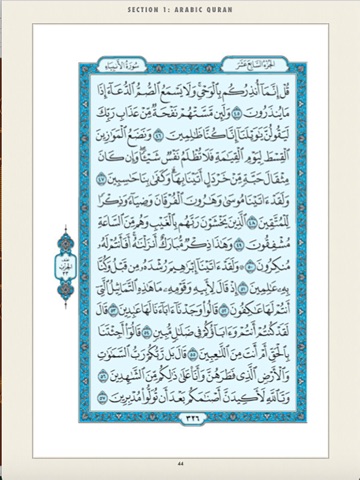 SECTION 1: ARABIC QURAN
سُورَةُ الأَنبِيَاءِ
الجُزْءُ السَّابِعَ عَشَرَ
قُلْ إِنَّمَآ أُنذِرُكُم بِٱلْوَحْىِ ۚ وَلَا يَسْمَعُ ٱلصُّمُّ ٱلدُّعَآءَ إِذَا
مَا يُنذَرُونَ ٤٥ وَلَئِن مَّسَّتْهُمْ نَفْحَةٌ مِّنْ عَذَابِ رَبِّكَ
لَيَقُولُنَّ يَٰوَيْلَنَآ إِنَّا كُنَّا ظَٰلِمِينَ ٤٦ وَنَضَعُ ٱلْمَوَٰزِينَ
ٱلْقِسْطَ لِيَوْمِ ٱلْقِيَٰمَةِ فَلَا تُظْلَمُ نَفْسٌ شَيْـًٔا ۖ وَإِن كَانَ
مِثْقَالَ حَبَّةٍ مِّنْ خَرْدَلٍ أَتَيْنَا بِهَا ۗ وَكَفَىٰ بِنَا حَٰسِبِينَ ٤٧
وَلَقَدْ ءَاتَيْنَا مُوسَىٰ وَهَٰرُونَ ٱلْفُرْقَانَ وَضِيَآءً وَذِكْرًا
لِّلْمُتَّقِينَ ٤٨ ٱلَّذِينَ يَخْشَوْنَ رَبَّهُم بِٱلْغَيْبِ وَهُم مِّنَ ٱلسَّاعَةِ
مُشْفِقُونَ ٤٩ وَهَٰذَا ذِكْرٌ مُّبَارَكٌ أَنزَلْنَٰهُ ۚ أَفَأَنتُمْ لَهُۥ
مُنكِرُونَ ٥٠ ۞ وَلَقَدْ ءَاتَيْنَآ إِبْرَٰهِيمَ رُشْدَهُۥ مِن قَبْلُ وَكُنَّا
بِهِۦ عَٰلِمِينَ ٥١ إِذْ قَالَ لِأَبِيهِ وَقَوْمِهِۦ مَا هَٰذِهِ ٱلتَّمَاثِيلُ ٱلَّتِىٓ
أَنتُمْ لَهَا عَٰكِفُونَ ٥٢ قَالُوا۟ وَجَدْنَآ ءَابَآءَنَا لَهَا عَٰبِدِينَ ٥٣ قَالَ
لَقَدْ كُنتُمْ أَنتُمْ وَءَابَآؤُكُمْ فِى ضَلَٰلٍ مُّبِينٍ ٥٤ قَالُوٓا۟ أَجِئْتَنَا
بِٱلْحَقِّ أَمْ أَنتَ مِنَ ٱللَّٰعِبِينَ ٥٥ قَالَ بَل رَّبُّكُمْ رَبُّ ٱلسَّمَٰوَٰتِ
وَٱلْأَرْضِ ٱلَّذِى فَطَرَهُنَّ وَأَنَا۠ عَلَىٰ ذَٰلِكُم مِّنَ ٱلشَّٰهِدِينَ ٥٦
وَتَٱللَّهِ لَأَكِيدَنَّ أَصْنَٰمَكُم بَعْدَ أَن تُوَلُّوا۟ مُدْبِرِينَ ٥٧
٣٢٦